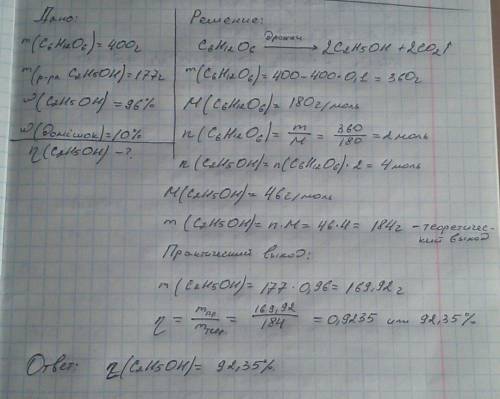 Дано:
m(C6H12O6) = 400г
m(р-ра C2H5OH) = 177г
ω(C2H5OH) = 96%
ω(домішок) = 10%
η(C2H5OH) - ?
Решение:
C6H12O6 дрожжи → 2C2H5OH + 2CO2↑
m(C6H12O6) = 400 - 400·0,1 = 360г
M(C6H12O6) = 180г/моль
n(C6H12O6) = m/M = 360/180 = 2 моль
n(C2H5OH) = n(C6H12O6)·2 = 4 моль
M(C2H5OH) = 46г/моль
m(C2H5OH) = n·M = 46·4 = 184г - теоретичес-
кий выход
Практический выход:
m(C2H5OH) = 177·0,96 = 169,92г
η = mпр./mтеор. = 169,92/184 = 0,9235 или 92,35%
Ответ: η(C2H5OH) = 92,35%